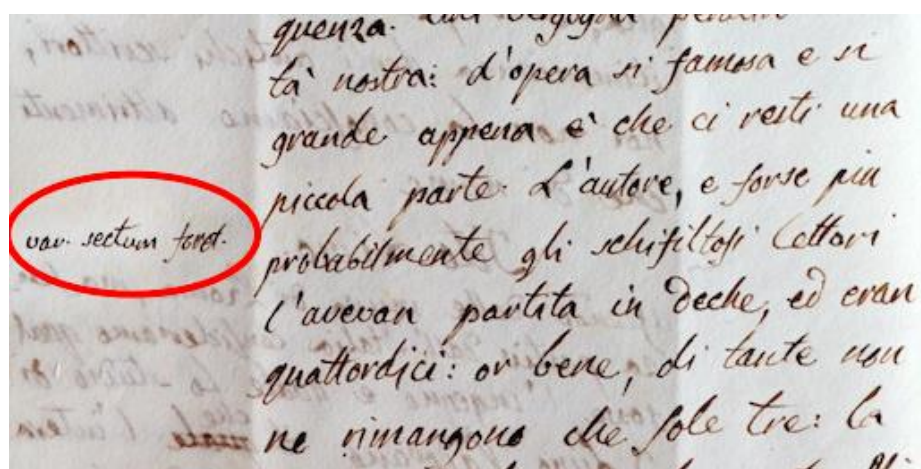 quenza.
tà nostra: d'opera sì famosa e sì
grande appena è che ci resti una
piccola parte. L'autore, e forse piu
var. sectum foret.
probabilmente gli schifiltosi lettori
l'avevan partita in Deche, ed eran
quattordici: or bene, di tante non
ne rimangono che sole tre: la